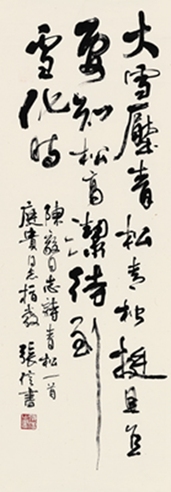 大雪壓青松青松挺且直
要知松高潔待到
雪化時
陳毅同志詩青松一首
庭貴同志指教 張信書